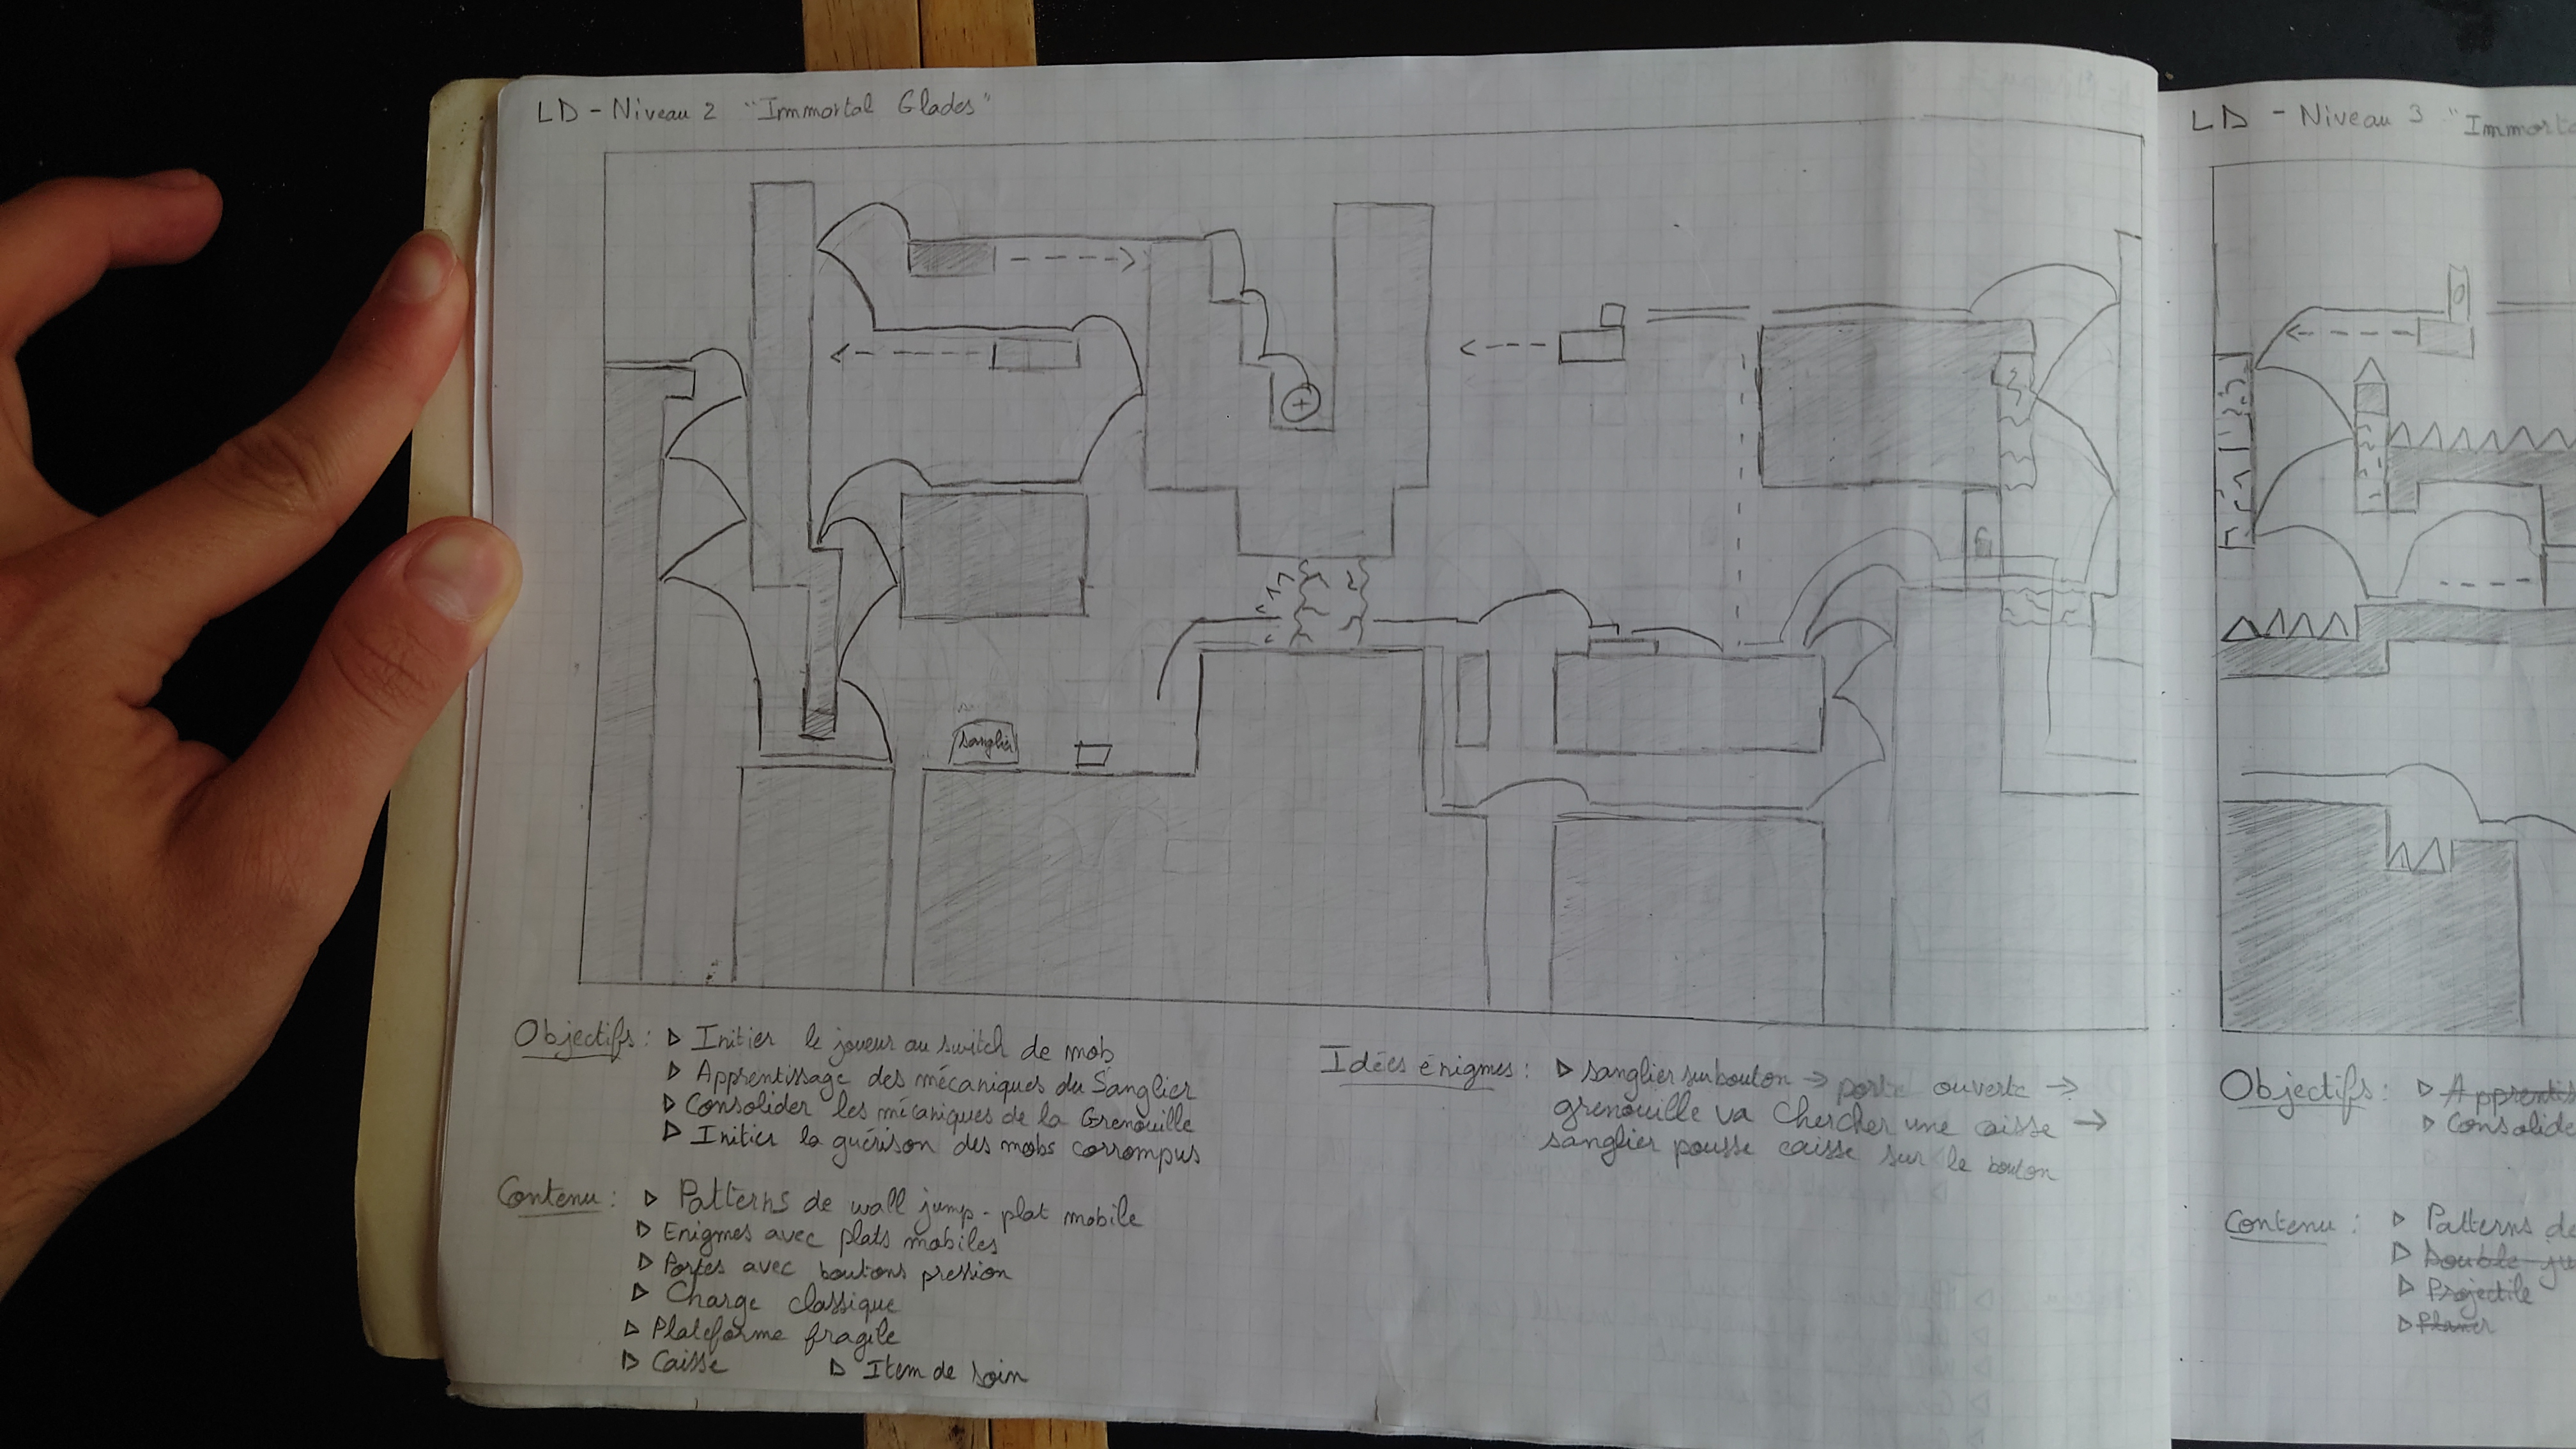 LD - Niveau 2 "Immortal Glades"
Sanglier
Objectifs : ▷ Initier le joueur au switch de mob
▷ Apprentissage des mécaniques du Sanglier
▷ Consolider les mécaniques de la Grenouille
▷ Initier la guérison des mobs corrompus
Contenu : ▷ Patterns de wall jump - plat mobile
▷ Enigmes avec plats mobiles
▷ Portes avec boutons pression
▷ Charge classique
▷ Plateforme fragile
▷ Caisse ▷ Item de soin
Idées énigmes : ▷ sanglier sur bouton → porte ouverte →
grenouille va chercher une caisse →
sanglier pousse caisse sur le bouton
LD - Niveau 3 "Immort
Objectifs : ▷ Apprentis
▷ Consolide
Contenu : ▷ Patterns de
▷ Double-ju
▷ Projectile